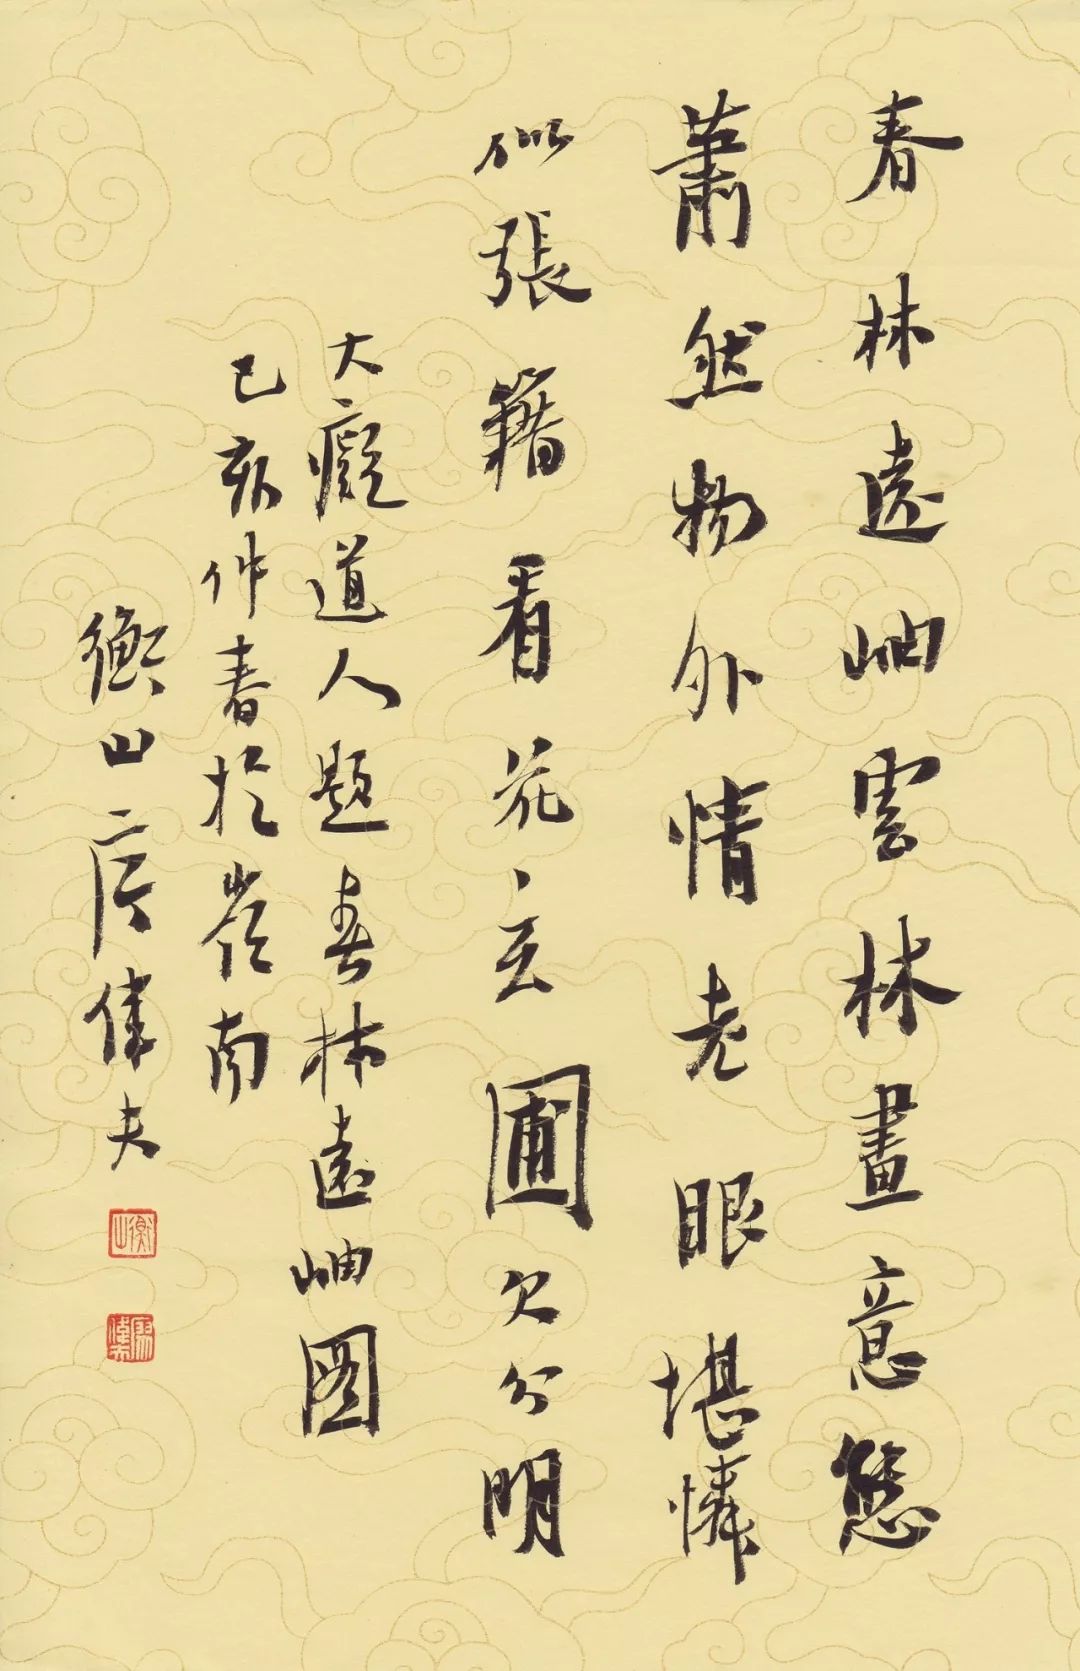 春林遠岫雲林畫意態
蕭然物外情老眼堪憐
似張籍看花玄圃欠分明
大癡道人題春林遠岫圖
己亥仲春於嶺南
衡山偉夫
衡山